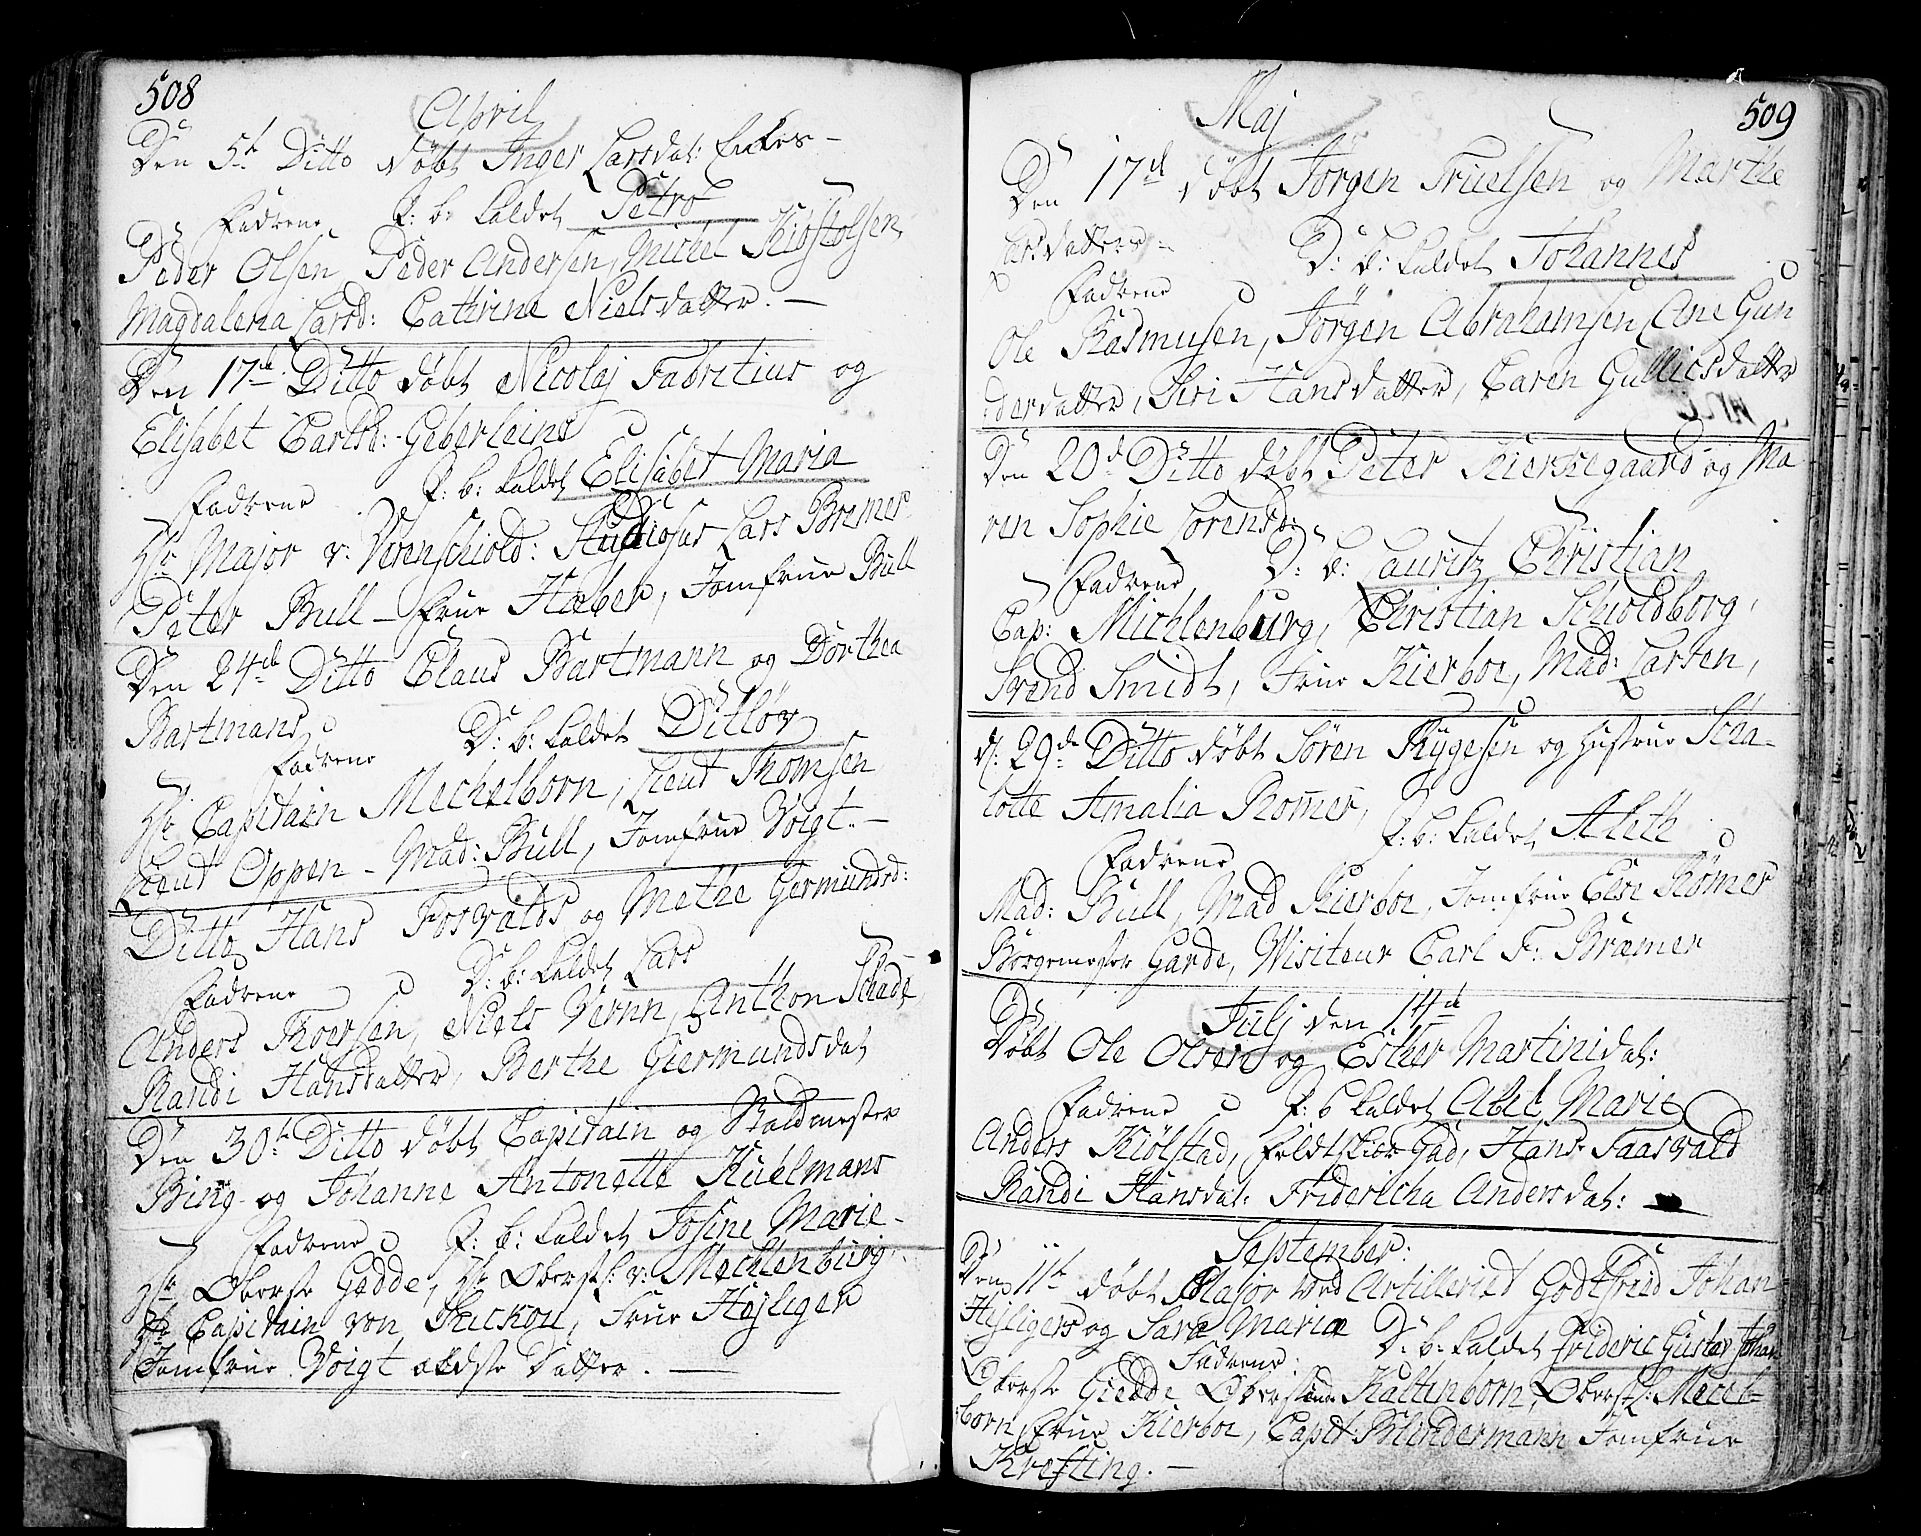 508
April
Den 5t Ditto døbt Inger Larsdat: Enkes-
Fadrene P: b: kaldet Petro
Peder Olsen, Peder Andersen, Michel Kiøstolsen,
Magdalena Larsd: Cathrine Nielsdatter. —
Den 17de Ditto døbt Nicolaj Fabritius og
Elisabet Carlsd: Geberleins
Fadrene P: b: kaldet Elisabet Maria
Hr Major v: Verenschiold: Studiosus Lars Bremer
Peter Bull - Frue Hæber, Jomfrue Bull
Den 24de Ditto Claus Bartmann og Dorthea
Bartmans
Fadrene D: b: kaldet Ditløv
Hr Capitain Mechelborn, Lieut Thomsen
Lieut Oppen - Mad: Bull, Jomfrue Voigt. —
Ditto Hans Fosvalds og Methe Germundsd:
Fadrene D: b: kaldet Lars
Anders Thoersen, Niels Vernn, Anthon Schade
Randi Hansdatter, Berthe Giermundsdat
Den 30t Ditto døbt Capitain og Staldmester
Bing og Johanne Antonette Kuelmans
Fadrene P: b: kaldet Josine Marie-
Hr Oberste Gedde, Hr Oberstl: v: Mechlenburg,
Hr Capitain von Kuckou, Frue Hejliger
Jomfrue Voigt ældste Datter. —
509
Maj
Den 17de døbt Jørgen Truelsen og Marthe
Larsdatters -
D: b: kaldet Johannes
Fadrene
Ole Rasmusen, Jørgen Abrahamsen, Ane Gun
derdatter, Siri Hansdatter, Caren Gullicsdatter
Den 20d Ditto døbt Peter Kierkegaard og Ma
ren Sophie Lorensd:
Fadrene D: b: Lauritz Christian
Cap: Michlenburg, Christian Schioldborg,
Svend Smidt, Frue Kierboe, Mad: Larsen,
d: 29de Ditto døbt Søren Rygesen og Hustrue Scha-
lotte Amalia Romer,
Fadrene P: b: kaldet Aleth
Mad: Bull, Mad Kierboe, Jomfrue Else Rømer
Borgemester Garde, Visiteur Carl F: Bræmer
Julj den 14de
Døbt Ole Olsens og Esther Martinidat:
Fadrene P: b kaldet Abel Marie
Anders Kiølstad, Feldtskier Gad, Hans Faasvald
Randi Hansdat: Fridericha Andersdat:
September:
Den 11te døbt Major ved Artilleriet Godtfried Johan
Hejligers og Sara Maria D: b: kaldet Frideric Gustav Johan
Fadrene:
Oberste Giedde Oberstinde Kaltenborn, Oberstl: Mecel-
born, Frue Kierboe, Capit: Blindermann Jomfrue
Krefting. —